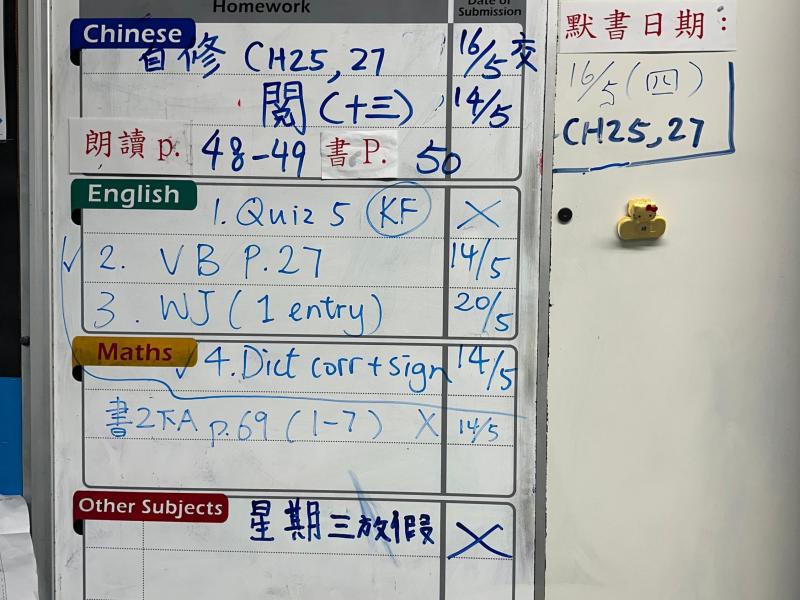 Homework
Date of Submission
Chinese
自修 CH25, 27 16/5 交
閱 (十三) 14/5
朗讀 p. 48-49 書 P. 50
English
1. Quiz 5 KF X
2. VB P.27 14/5
3. WJ (1 entry) 20/5
Maths
4. Dict corr + sign 14/5
書2下A p.69 (1-7) X 14/5
Other Subjects
星期三放假 X
默書日期：
16/5 (四)
CH25, 27